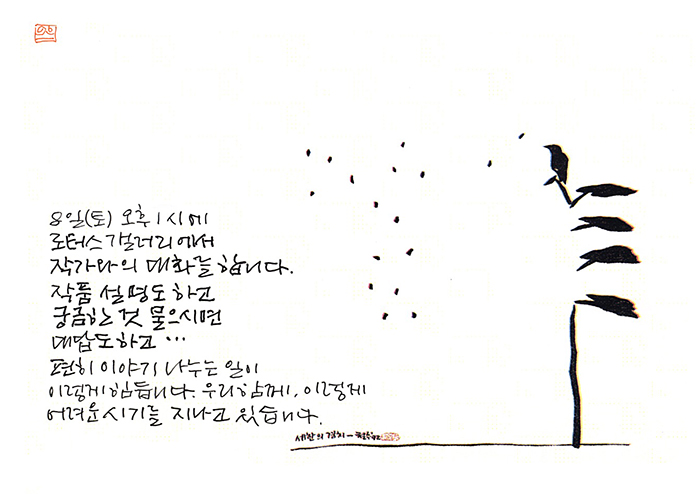 8일(토) 오후 1시에
로터스갤러리에서
작가와의 대화를 합니다.
작품 설명도 하고
궁금한 것 물으시면
대답도하고 …
편히 이야기 나누는 일이
이렇게 힘듭니다. 우리함께, 이렇게
어려운 시기를 지나고 있습니다.
세한의 까치 –